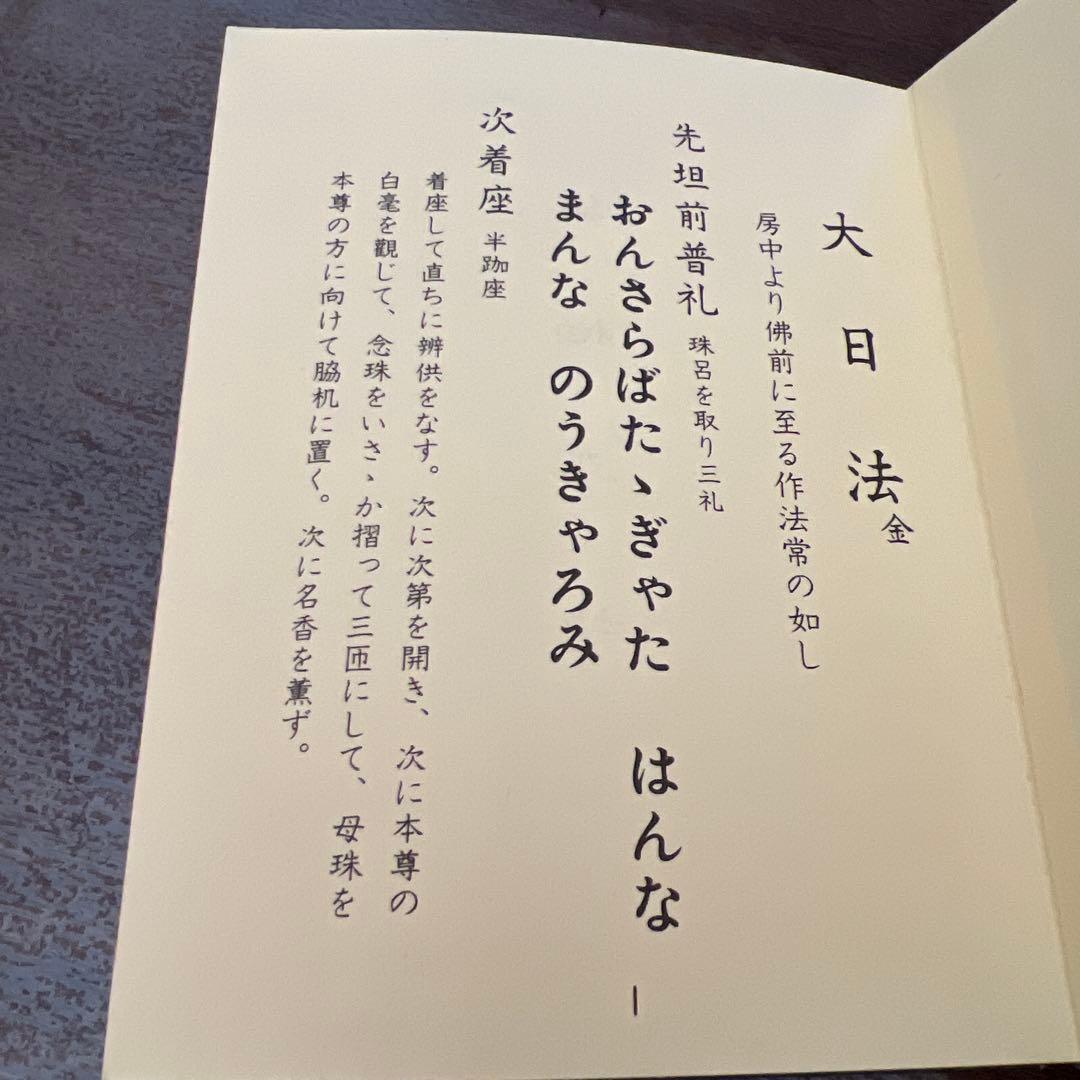 大日法金
房中より佛前に至る作法常の如し
先坦前普礼 珠呂を取り三礼
おんさらばたゝぎゃた はんな
まんな のうきゃろみ
次着座 半跏座
着座して直ちに辨供をなす。次に次第を開き、次に本尊の
白毫を觀じて、念珠をいさゝか摺って三匝にして、母珠を
本尊の方に向けて脇机に置く。次に名香を薫ず。
一